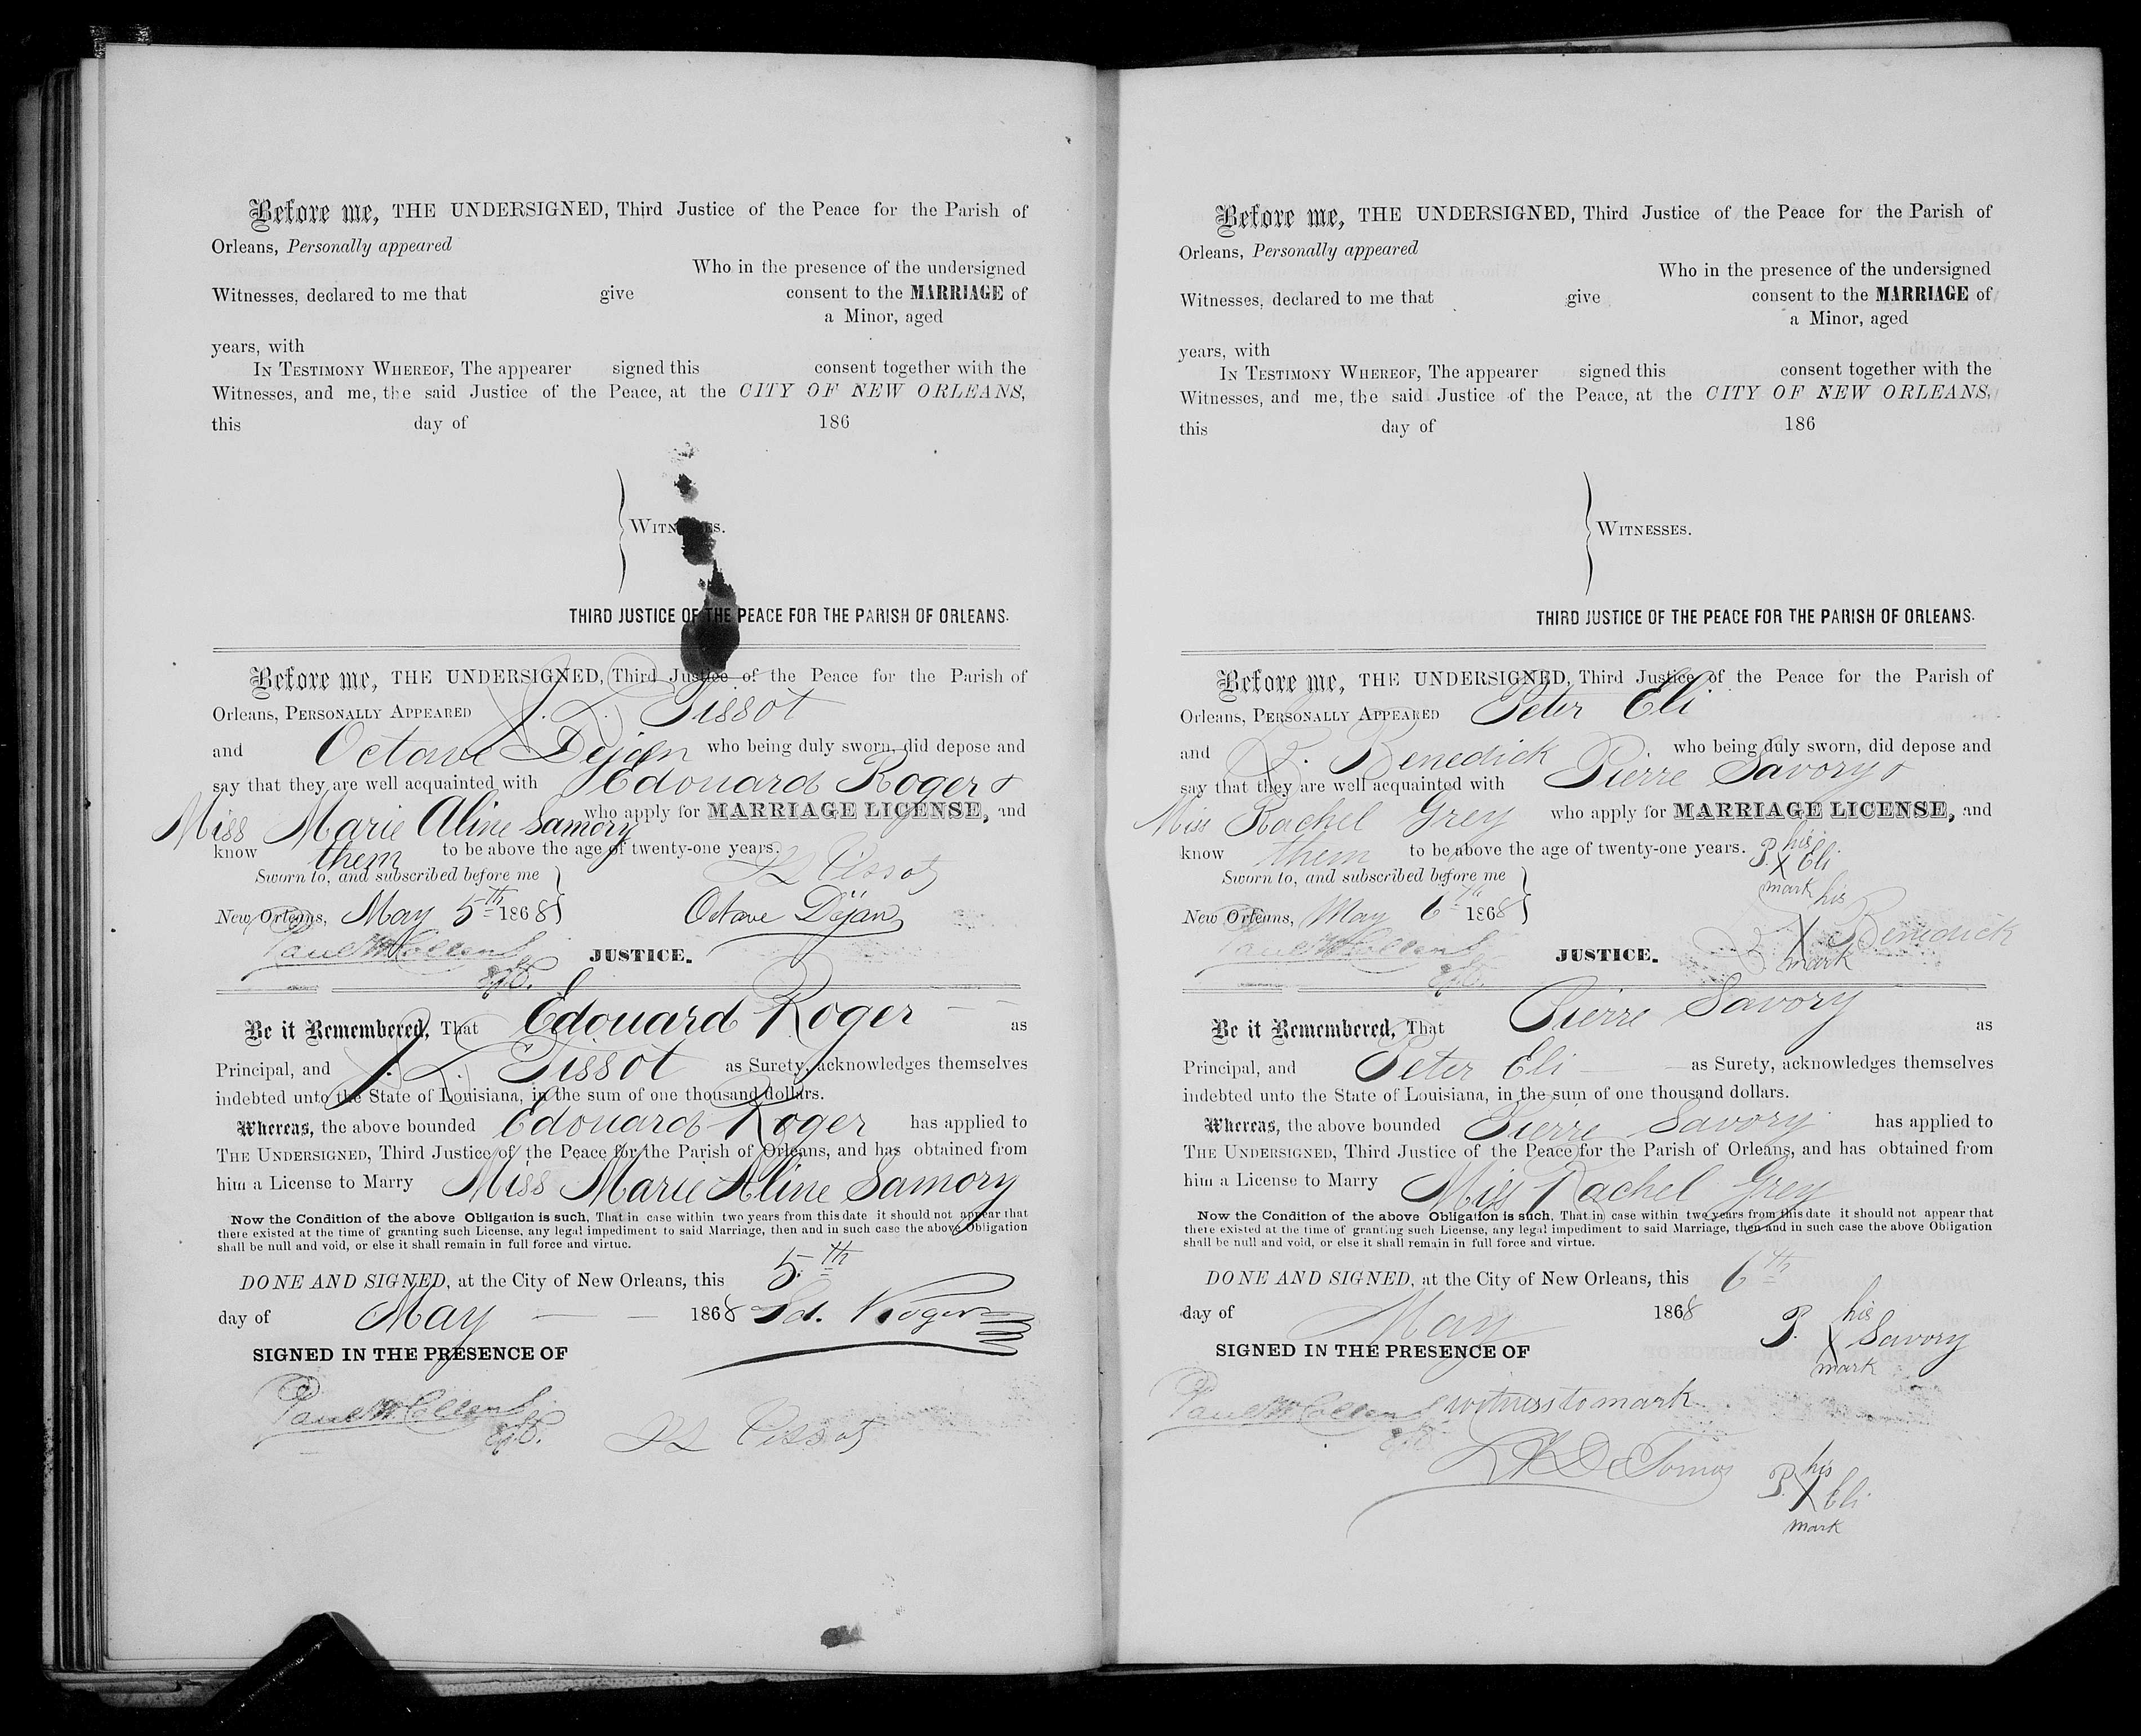 Before me, THE UNDERSIGNED, Third Justice of the Peace for the Parish of
Orleans, Personally appeared
Who in the presence of the undersigned
Witnesses, declared to me that give consent to the MARRIAGE of
a Minor, aged
years, with
IN TESTIMONY WHEREOF, The appearer signed this consent together with the
Witnesses, and me, the said Justice of the Peace, at the CITY OF NEW ORLEANS,
this day of 186
WITNESSES.
THIRD JUSTICE OF THE PEACE FOR THE PARISH OF ORLEANS.
Before me, THE UNDERSIGNED, Third Justice of the Peace for the Parish of
Orleans, PERSONALLY APPEARED J. L. Tissot
and Octave Dejan who being duly sworn, did depose and
say that they are well acquainted with Edouard Roger &
Miss Marie Aline Samory who apply for MARRIAGE LICENSE, and
know them to be above the age of twenty-one years.
J L Tissot
Sworn to, and subscribed before me
New Orleans, May 5th 1868
Octave Dejan
JUSTICE.
Be it Remembered, That Edouard Roger as
Principal, and J. L. Tissot as Surety, acknowledges themselves
indebted unto the State of Louisiana, in the sum of one thousand dollars.
Whereas, the above bounded Edouard Roger has applied to
THE UNDERSIGNED, Third Justice of the Peace for the Parish of Orleans, and has obtained from
him a License to Marry Miss Marie Aline Samory
Now the Condition of the above Obligation is such, That in case within two years from this date it should not appear that
there existed at the time of granting such License, any legal impediment to said Marriage, then and in such case the above Obligation
shall be null and void, or else it shall remain in full force and virtue.
DONE AND SIGNED, at the City of New Orleans, this 5th
day of May 1868 Ed. Roger
SIGNED IN THE PRESENCE OF
J L Tissot
Before me, THE UNDERSIGNED, Third Justice of the Peace for the Parish of
Orleans, Personally appeared
Who in the presence of the undersigned
Witnesses, declared to me that give consent to the MARRIAGE of
a Minor, aged
years, with
IN TESTIMONY WHEREOF, The appearer signed this consent together with the
Witnesses, and me, the said Justice of the Peace, at the CITY OF NEW ORLEANS,
this day of 186
WITNESSES.
THIRD JUSTICE OF THE PEACE FOR THE PARISH OF ORLEANS.
Before me, THE UNDERSIGNED, Third Justice of the Peace for the Parish of
Orleans, PERSONALLY APPEARED Peter Eli
and Benedick who being duly sworn, did depose and
say that they are well acquainted with Pierre Savory &
Miss Rachel Grey who apply for MARRIAGE LICENSE, and
know them to be above the age of twenty-one years.
his
P. X Eli
mark
Sworn to, and subscribed before me
New Orleans, May 6th 1868
his
X Benedick
mark
JUSTICE.
Be it Remembered, That Pierre Savory as
Principal, and Peter Eli as Surety, acknowledges themselves
indebted unto the State of Louisiana, in the sum of one thousand dollars.
Whereas, the above bounded Pierre Savory has applied to
THE UNDERSIGNED, Third Justice of the Peace for the Parish of Orleans, and has obtained from
him a License to Marry Miss Rachel Grey
Now the Condition of the above Obligation is such, That in case within two years from this date it should not appear that
there existed at the time of granting such License, any legal impediment to said Marriage, then and in such case the above Obligation
shall be null and void, or else it shall remain in full force and virtue.
DONE AND SIGNED, at the City of New Orleans, this 6th
day of May 1868
his
P. X Savory
mark
SIGNED IN THE PRESENCE OF
witness to mark
his
P. X Eli
mark